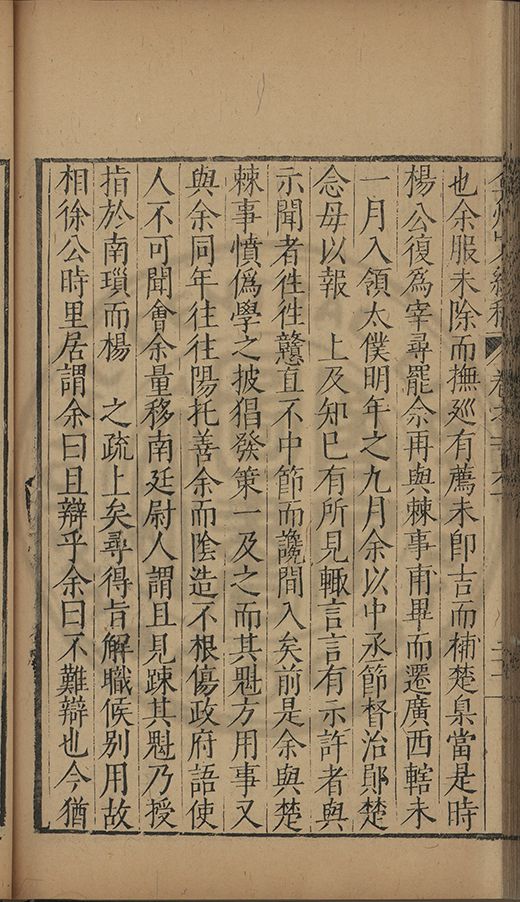 也余服未除而撫廵有薦未卽吉而補楚臬當是時
楊公復為宰尋罷余再與棘事甫畢而遷廣西轄未
一月入領太僕明年之九月余以中丞節督治鄖楚
念母以報　上及知已有所見輙言言有示許者與
示聞者徃徃戇直不中節而讒間入矣前是余與楚
棘事憤偽學之披猖發策一及之而其魁方用事又
與余同年往往陽托善余而陰造不根傷政府語使
人不可聞會余量移南廷尉人謂且見踈其魁乃授
指於南瑣而楊　之疏上矣尋得旨解職候别用故
相徐公時里居謂余曰且辯乎余曰不難辯也今猶